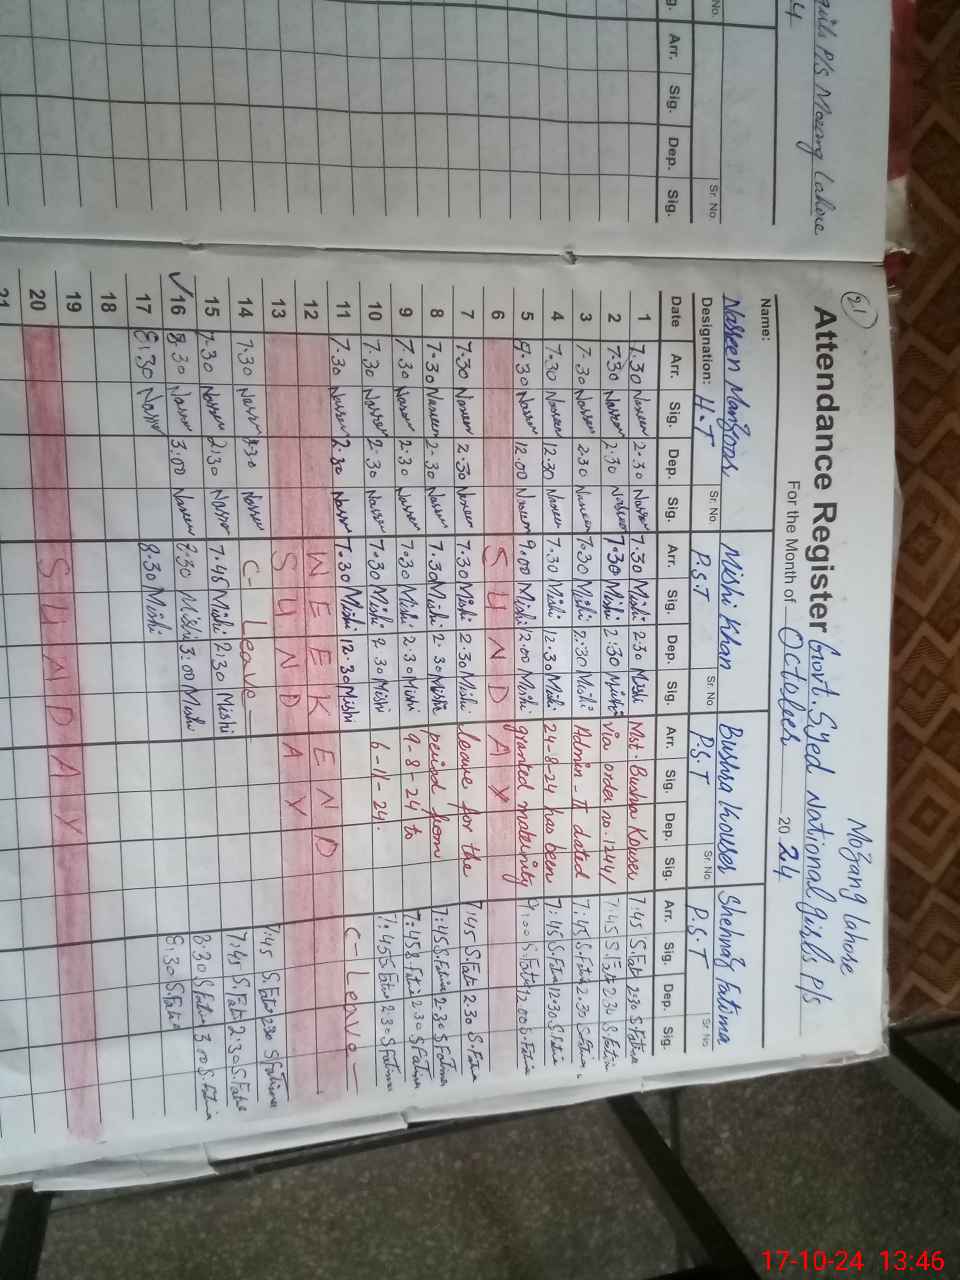 girls P/S Mozang Lahore
4
No. Sr. No.
g. Arr. Sig. Dep. Sig.
21
Attendance Register
Mozang Lahore
Govt. Syed National girls P/S
For the Month of October 20 24
Name: Nasreen Manzoor Mishi Khan Bushra Kowser Shehnaz Fatima
Designation: H.T Sr. No. P.S.T Sr. No P.S.T Sr. No P.S.T Sr. No
Date Arr. Sig. Dep. Sig. Arr. Sig. Dep. Sig. Arr. Sig. Dep. Sig. Arr. Sig. Dep. Sig.
1 7.30 Nasreen 2.30 Nasreen 7.30 Mishi 2.30 Mishi Mst. Bushra Kowser 7:45 S.Fatima 2:30 S.Fatima
2 7.30 Nasreen 2.30 Nasreen 7.30 Mishi 2.30 Mishi Via order no. 1244/ 7:45 S.Fatima 2.30 S.Fatima
3 7.30 Nasreen 2.30 Nasreen 7.30 Mishi 2.30 Mishi Admin-II dated 7:45 S.Fatima 2.30 S.Fatima
4 7.30 Nasreen 12.30 Nasreen 7.30 Mishi 12.30 Mishi 24-8-24 has been 7:45 S.Fatima 12.30 S.Fatima
5 9.30 Nasreen 12.00 Nasreen 9.00 Mishi 12.00 Mishi granted maternity 9:00 S.Fatima 12.00 S.Fatima
6 SUNDAY
7 7.30 Nasreen 2.30 Nasreen 7.30 Mishi 2.30 Mishi leave for the 7:45 S.Fatima 2.30 S.Fatima
8 7.30 Nasreen 2.30 Nasreen 7.30 Mishi 2.30 Mishi period from 7:45 S.Fatima 2.30 S.Fatima
9 7.30 Nasreen 2.30 Nasreen 7.30 Mishi 2.30 Mishi 9-8-24 to 7:45 S.Fatima 2.30 S.Fatima
10 7.30 Nasreen 2.30 Nasreen 7.30 Mishi 2.30 Mishi 6-11-24. 7:45 S.Fatima 2.30 S.Fatima
11 7.30 Nasreen 2.30 Nasreen 7.30 Mishi 12.30 Mishi C-Leave
12 WEEKEND
13 SUNDAY
14 7.30 Nasreen Nasreen C-Leave 7:45 S.Fatima 2.30 S.Fatima
15 7.30 Nasreen 2.30 Nasreen 7.45 Mishi 2.30 Mishi 7:45 S.Fatima 2.30 S.Fatima
16 8.30 Nasreen 3.00 Nasreen 8.30 Mishi 3.00 Mishi 8.30 S.Fatima 3.00 S.Fatima
17 8.30 Nasreen 8.30 Mishi 8.30 S.Fatima
18
19
20 SUNDAY
21
17-10-24 13:46